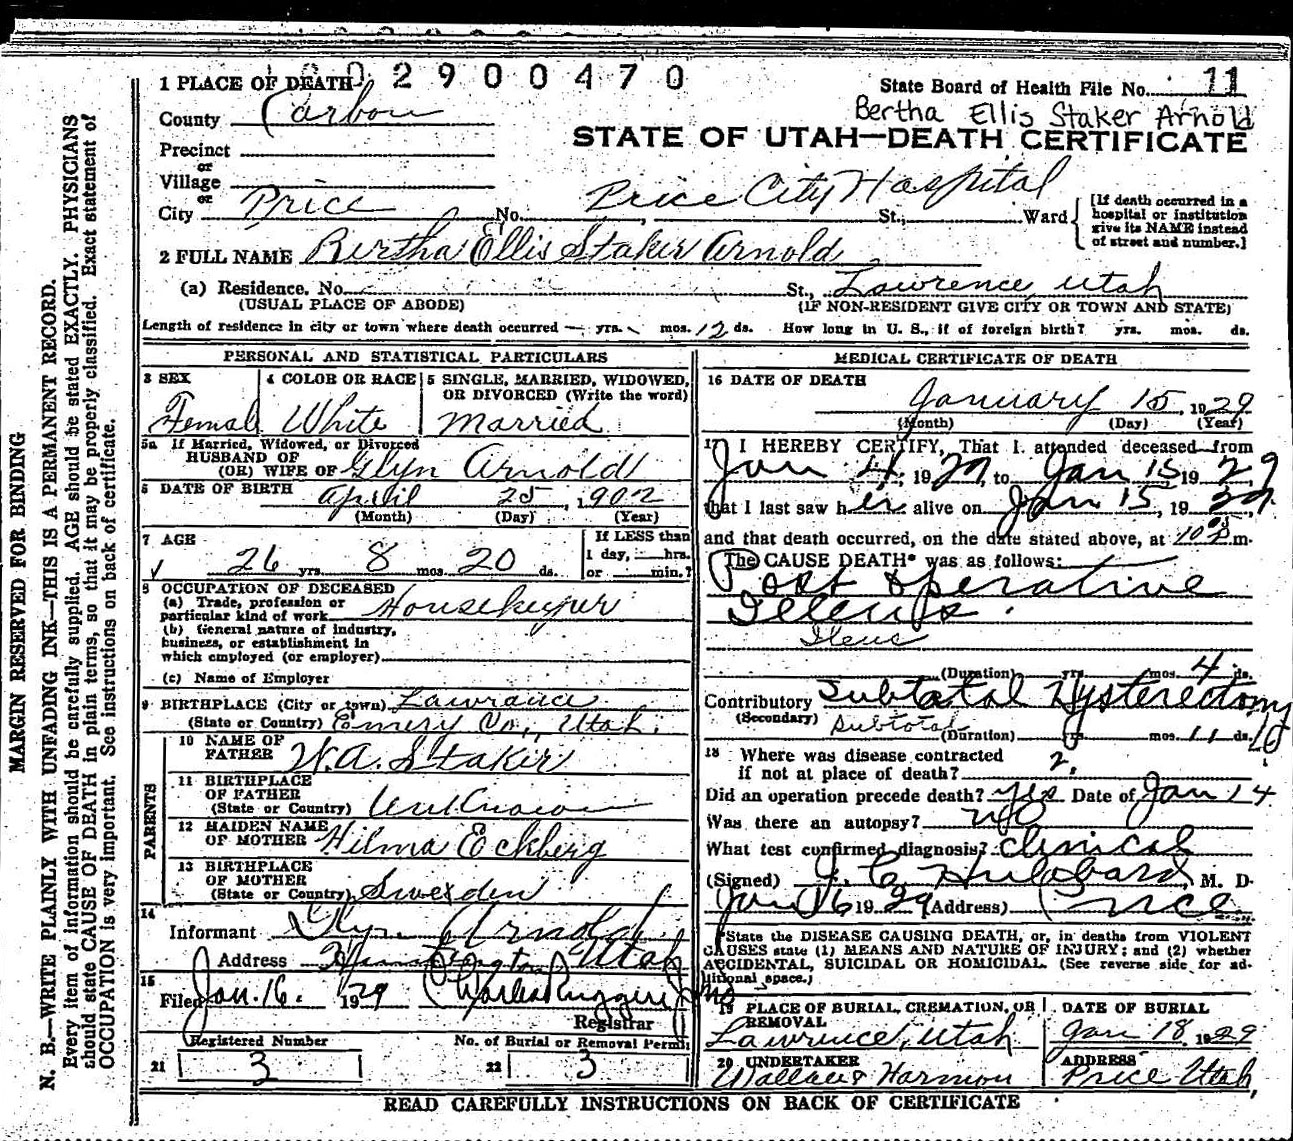 1 PLACE OF DEATH 002900470
State Board of Health File No. 11
County Carbon
Bertha Ellis Staker Arnold
STATE OF UTAH—DEATH CERTIFICATE
Precinct
or
Village
or
City Price No. Price City Hospital St.; Ward
[If death occurred in a
hospital or institution
give its NAME instead
of street and number.]
2 FULL NAME Bertha Ellis Staker Arnold
(a) Residence. No. St., Lawrence, Utah
(USUAL PLACE OF ABODE) (IF NON-RESIDENT GIVE CITY OR TOWN AND STATE)
Length of residence in city or town where death occurred — yrs. mos. 12 ds. How long in U. S., if of foreign birth? yrs. mos. ds.
PERSONAL AND STATISTICAL PARTICULARS
3 SEX
Female
4 COLOR OR RACE
White
5 SINGLE, MARRIED, WIDOWED,
OR DIVORCED (Write the word)
Married
5a If Married, Widowed, or Divorced
HUSBAND OF
(OR) WIFE OF Glyn Arnold
6 DATE OF BIRTH April 25, 1902
(Month) (Day) (Year)
7 AGE
26 yrs. 8 mos. 20 ds.
If LESS than
1 day, hrs.
or min.?
8 OCCUPATION OF DECEASED
(a) Trade, profession or
particular kind of work Housekeeper
(b) General nature of industry,
business, or establishment in
which employed (or employer)
(c) Name of Employer
9 BIRTHPLACE (City or town) Lawrance
(State or Country) Emery Co., Utah.
PARENTS
10 NAME OF
FATHER W. A. Staker
11 BIRTHPLACE
OF FATHER
(State or Country) Unknown
12 MAIDEN NAME
OF MOTHER Hilma Eckberg
13 BIRTHPLACE
OF MOTHER
(State or Country) Sweeden
14
Informant Glyn Arnold
Address Huntington Utah
15
Filed Jan. 16. 1929 Charles Ruggeri Jr MD
Registrar
Registered Number No. of Burial or Removal Permit
21 3 22 3
MEDICAL CERTIFICATE OF DEATH
16 DATE OF DEATH
January 15, 1929
(Month) (Day) (Year)
17 I HEREBY CERTIFY, That I attended deceased from
Jan 4, 1929, to Jan 15 1929
that I last saw her alive on Jan 15, 1929,
and that death occurred, on the date stated above, at 10 05 P m.
The CAUSE DEATH* was as follows:
Post operative
Illeus.
Ileus
(Duration) yrs. mos. 4 ds.
Contributory Subtotal Hysterectomy
(Secondary) Subtotal (Duration) yrs. mos. 11 ds. 10
18 Where was disease contracted
if not at place of death? ?
Did an operation precede death? yes Date of Jan 14
Was there an autopsy? no
What test confirmed diagnosis? Clinical
(Signed) J. C. Hubbard, M. D.
Jan 16 1929 (Address) Price
*State the DISEASE CAUSING DEATH, or, in deaths from VIOLENT
CAUSES state (1) MEANS AND NATURE OF INJURY; and (2) whether
ACCIDENTAL, SUICIDAL OR HOMICIDAL. (See reverse side for ad-
ditional space.)
19 PLACE OF BURIAL, CREMATION, OR
REMOVAL
Lawrence, Utah
DATE OF BURIAL
Jan 18 1929
20 UNDERTAKER
Wallace Harmon
ADDRESS
Price Utah,
READ CAREFULLY INSTRUCTIONS ON BACK OF CERTIFICATE
MARGIN RESERVED FOR BINDING
N. B.—WRITE PLAINLY WITH UNFADING INK—THIS IS A PERMANENT RECORD.
Every item of information should be carefully supplied. AGE should be stated EXACTLY. PHYSICIANS
should state CAUSE OF DEATH in plain terms, so that it may be properly classified. Exact statement of
OCCUPATION is very important. See instructions on back of certificate.